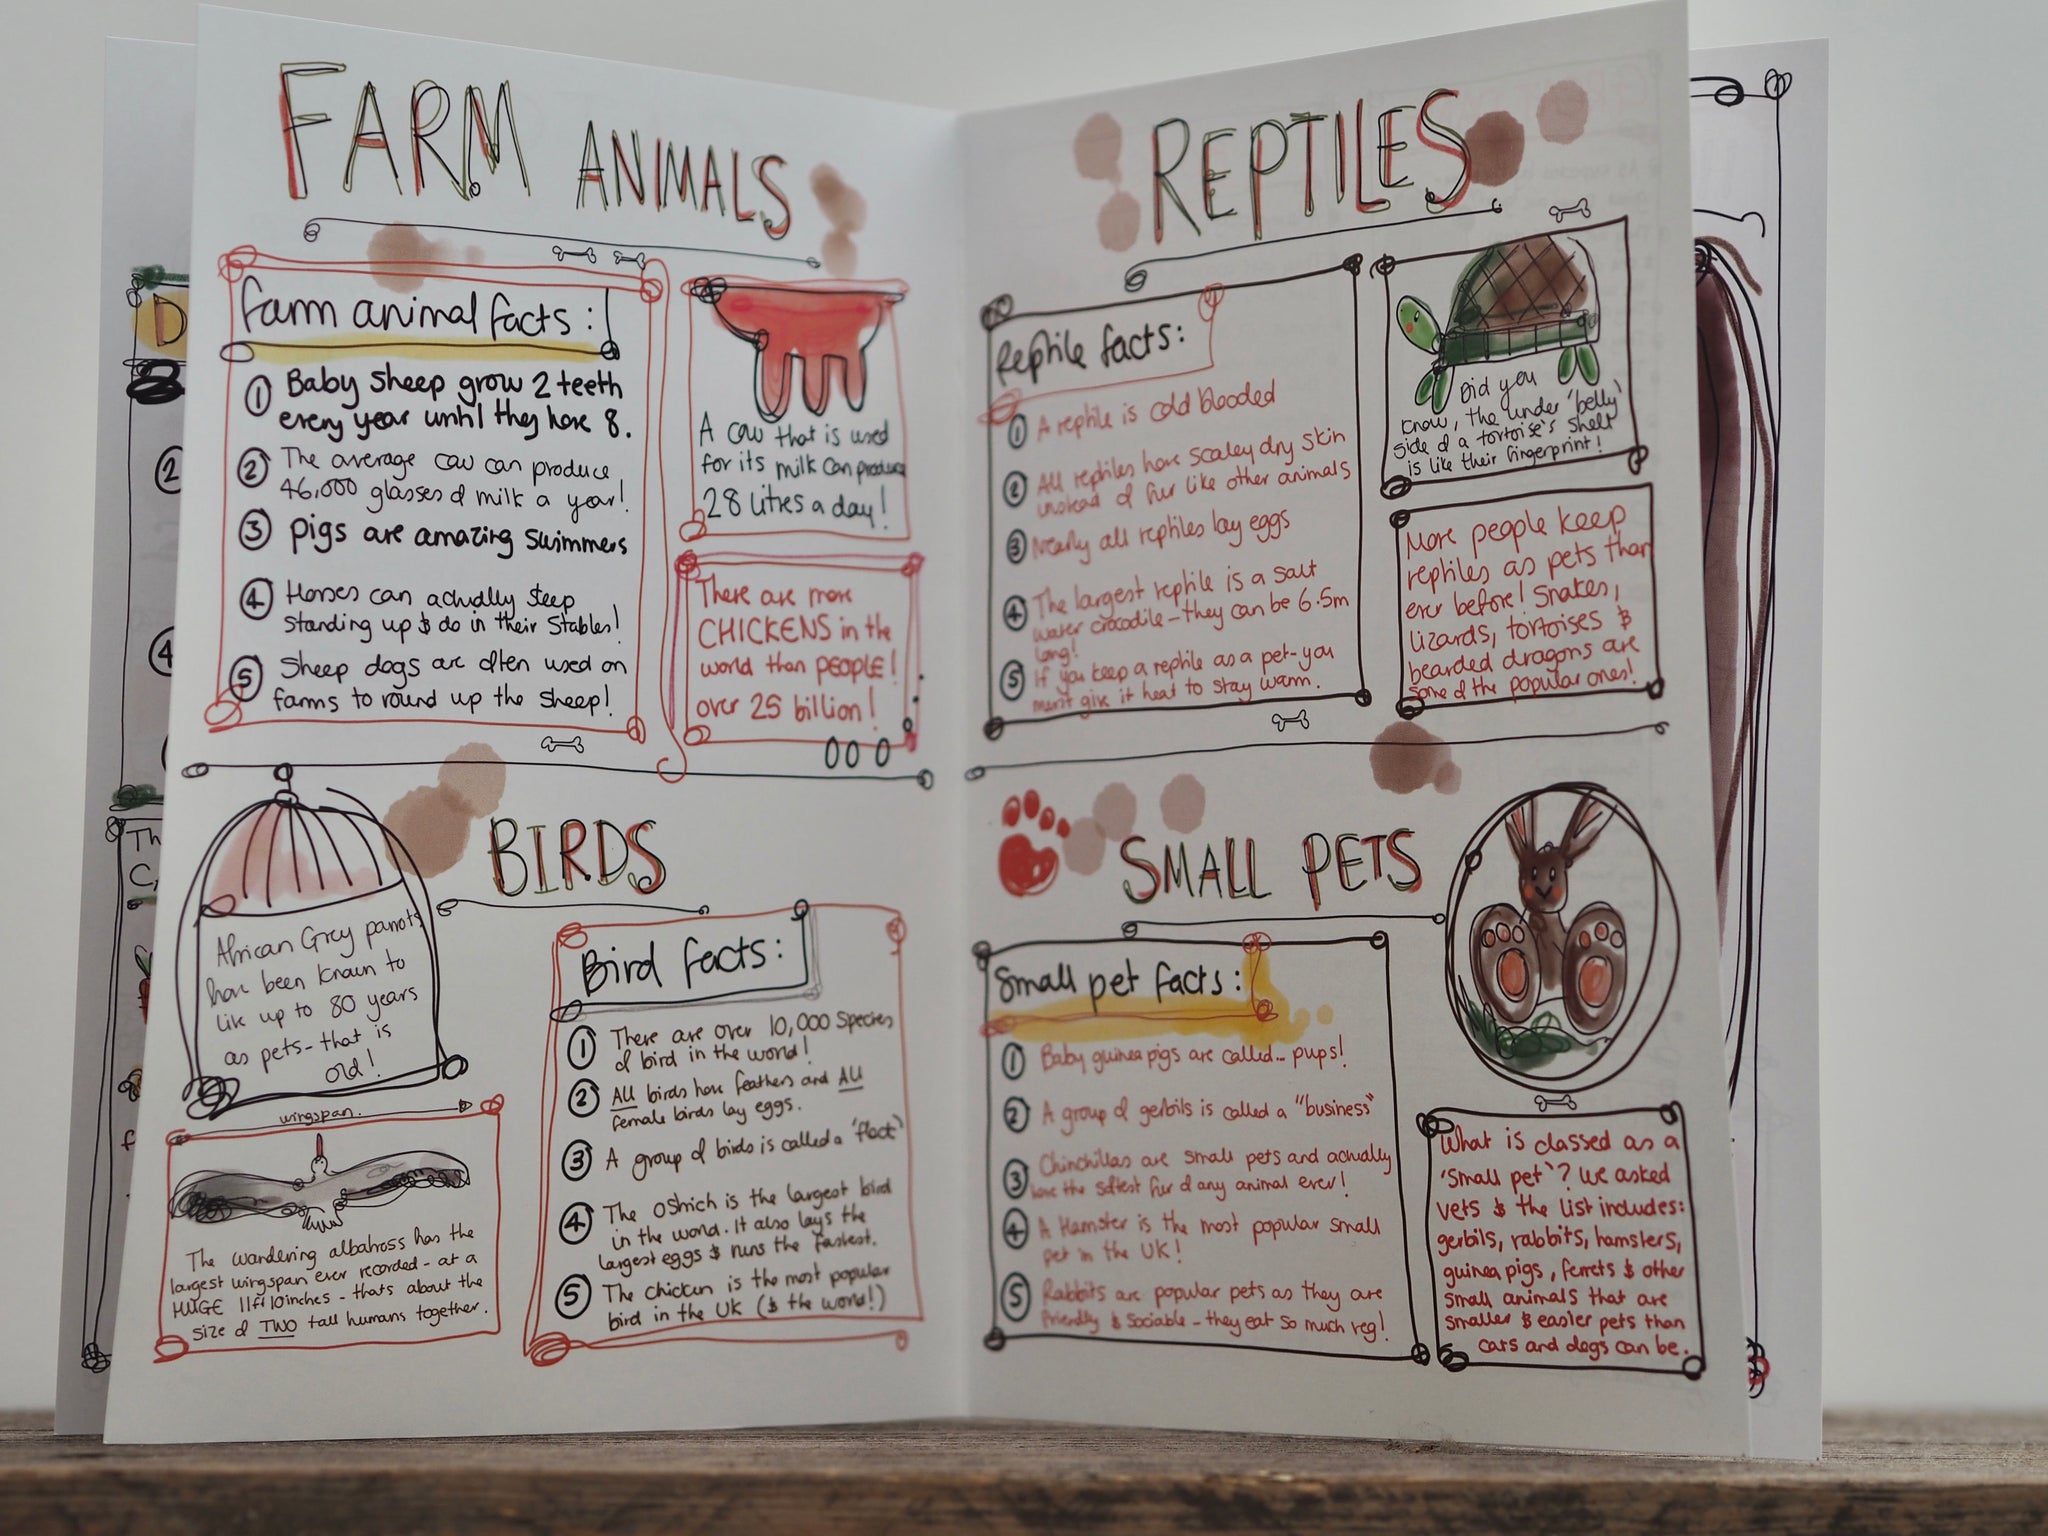 FARM ANIMALS
farm animal facts:
1 Baby sheep grow 2 teeth
every year until they have 8.
2 The average cow can produce
46,000 glasses of milk a year!
3 pigs are amazing swimmers
4 Horses can actually sleep
standing up & do in their stables!
5 Sheep dogs are often used on
farms to round up the sheep!
A cow that is used
for its milk can produce
28 litres a day!
There are more
CHICKENS in the
world than PEOPLE!
over 25 billion!
BIRDS
African Grey parrots
have been known to
live up to 80 years
as pets - that is
old!
wingspan.
The wandering albatross has the
largest wingspan ever recorded - at a
HUGE 11ft 10 inches - thats about the
size of TWO tall humans together.
Bird facts:
1 There are over 10,000 species
of bird in the world!
2 All birds have feathers and All
female birds lay eggs.
3 A group of birds is called a 'flock'
4 The ostrich is the largest bird
in the world. It also lays the
largest eggs & runs the fastest.
5 The chicken is the most popular
bird in the UK (& the world!)
REPTILES
Reptile facts:
1 A reptile is cold blooded
2 All reptiles have scaley dry skin
instead of fur like other animals
3 Nearly all reptiles lay eggs
4 The largest reptile is a salt
water crocodile - they can be 6.5m
long!
5 If you keep a reptile as a pet - you
must give it heat to stay warm.
Did you
know, the under 'belly'
side of a tortoise's shell
is like their fingerprint!
More people keep
reptiles as pets than
ever before! Snakes,
lizards, tortoises &
bearded dragons are
some of the popular ones!
SMALL PETS
Small pet facts:
1 Baby guinea pigs are called... pups!
2 A group of gerbils is called a "business"
3 Chinchillas are small pets and actually
have the softest fur of any animal ever!
4 A Hamster is the most popular small
pet in the UK!
5 Rabbits are popular pets as they are
friendly & sociable - they eat so much veg!
What is classed as a
'small pet'? We asked
vets & the list includes:
gerbils, rabbits, hamsters,
guinea pigs, ferrets & other
small animals that are
smaller & easier pets than
cats and dogs can be.
D
2
4
Th